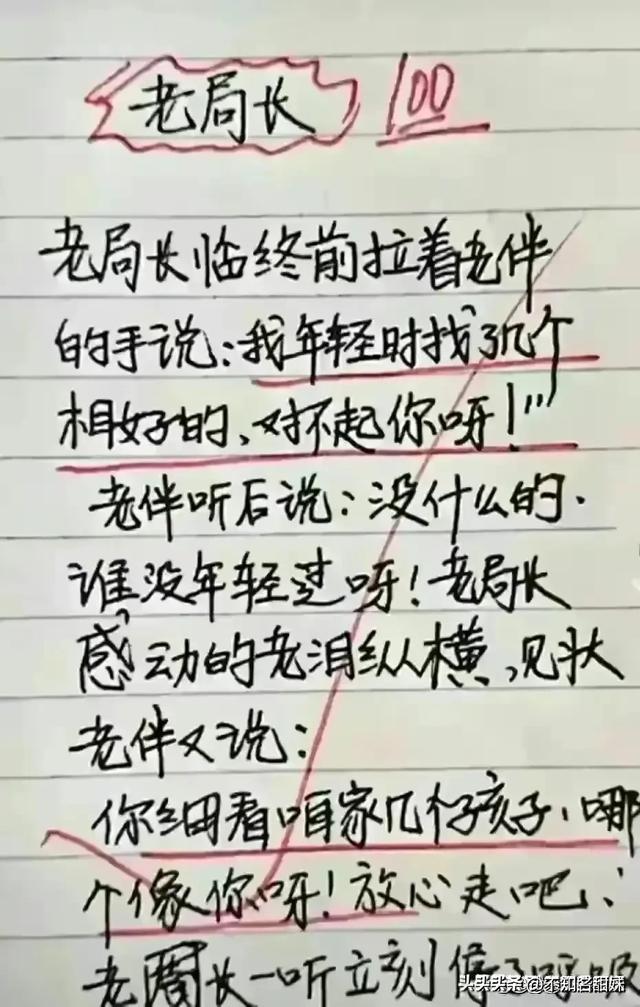 老局长 100
老局长临终前拉着老伴
的手说：我年轻时找了几个
相好的、对不起你呀！
老伴听后说：没什么的.
谁没年轻过呀！老局长
感动的老泪纵横，见状
老伴又说：
你细看咱家几个孩子、哪
个像你呀！放心走吧、
老局长一听立刻停了呼吸
头条 @不知名甜妹